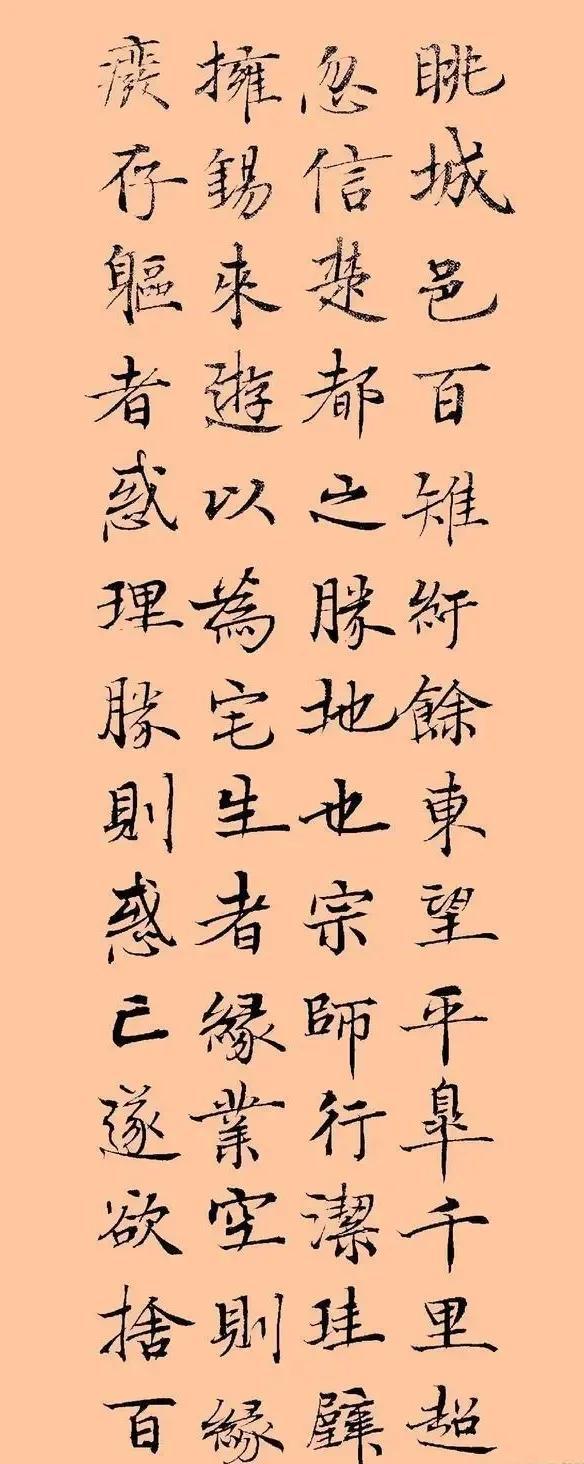 眺城邑百雉紆餘東望平臯千里超
忽信楚都之勝地也宗師行潔珪璧
擁錫來遊以為宅生者緣業空則緣
廢存軀者惑理勝則惑亡遂欲捨百